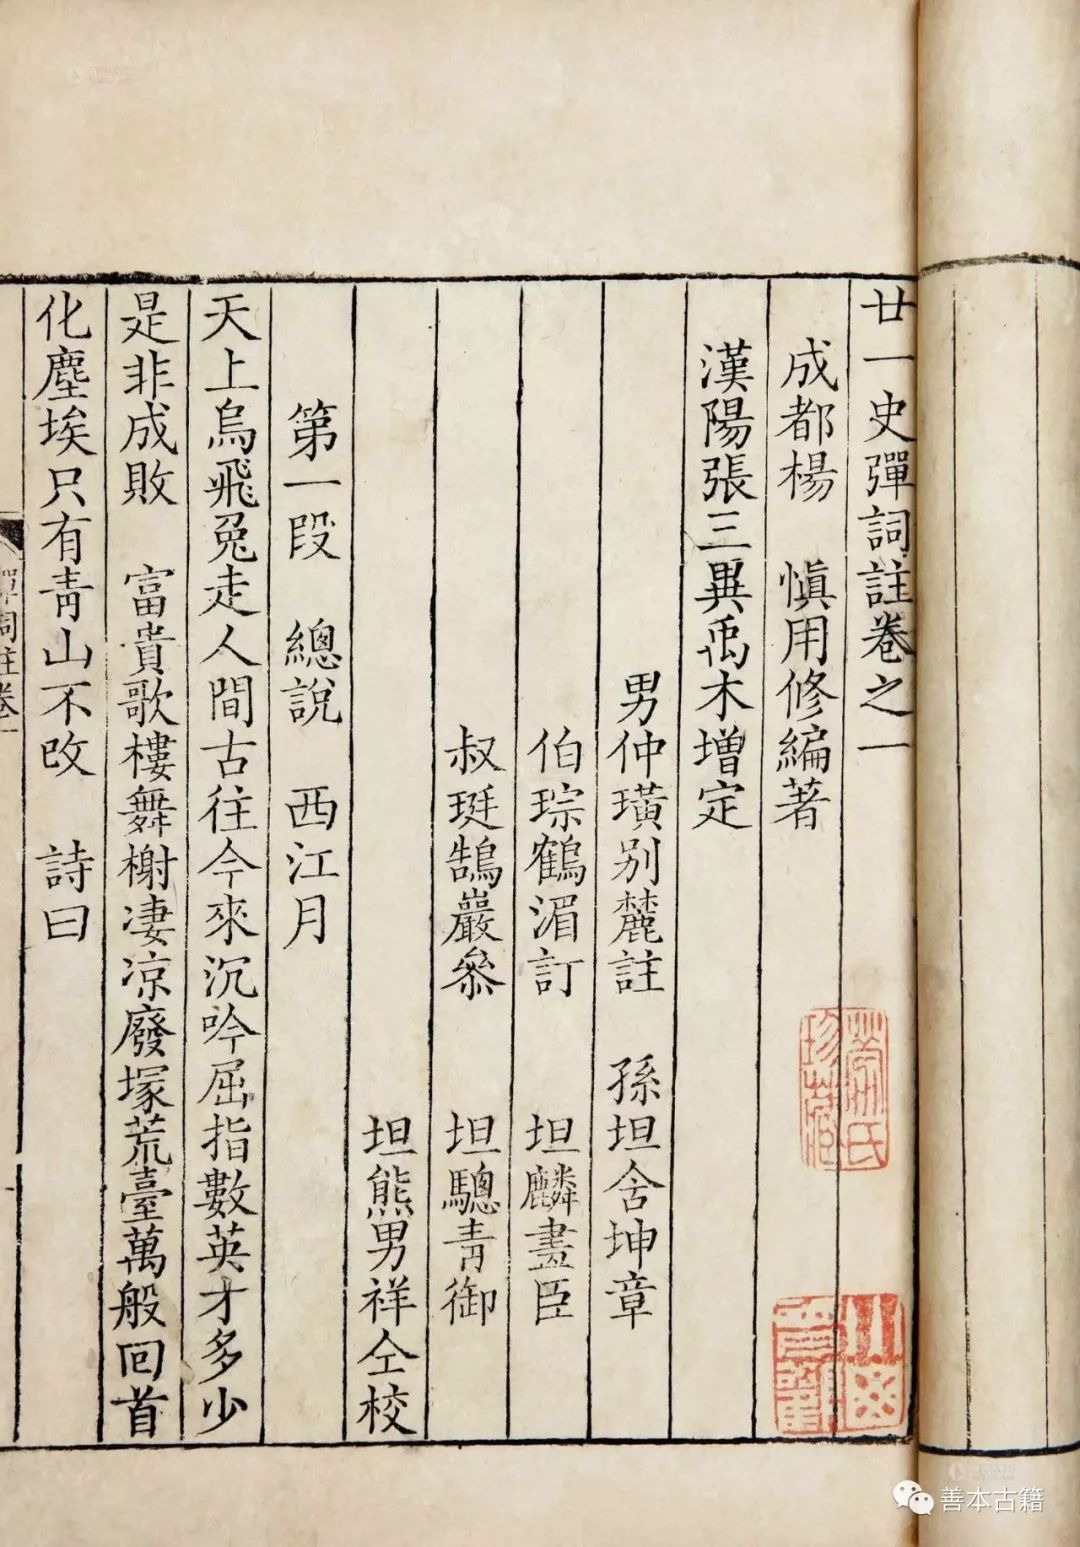 廿一史彈詞註卷之一
成都楊　慎用修編著
漢陽張三異禹木增定
男仲璜別麓註　孫坦含坤章
伯琮鶴湄訂　坦麟畫臣
叔珽鵠巖叅　坦驄青御
坦熊男祥仝校
第一段　總說　西江月
天上烏飛兔走人間古往今來沉吟屈指數英才多少
是非成敗　富貴歌樓舞榭凄凉廢塚荒臺萬般回首
化塵埃只有青山不改　詩曰
彈詞註卷一
珍藏
善本古籍